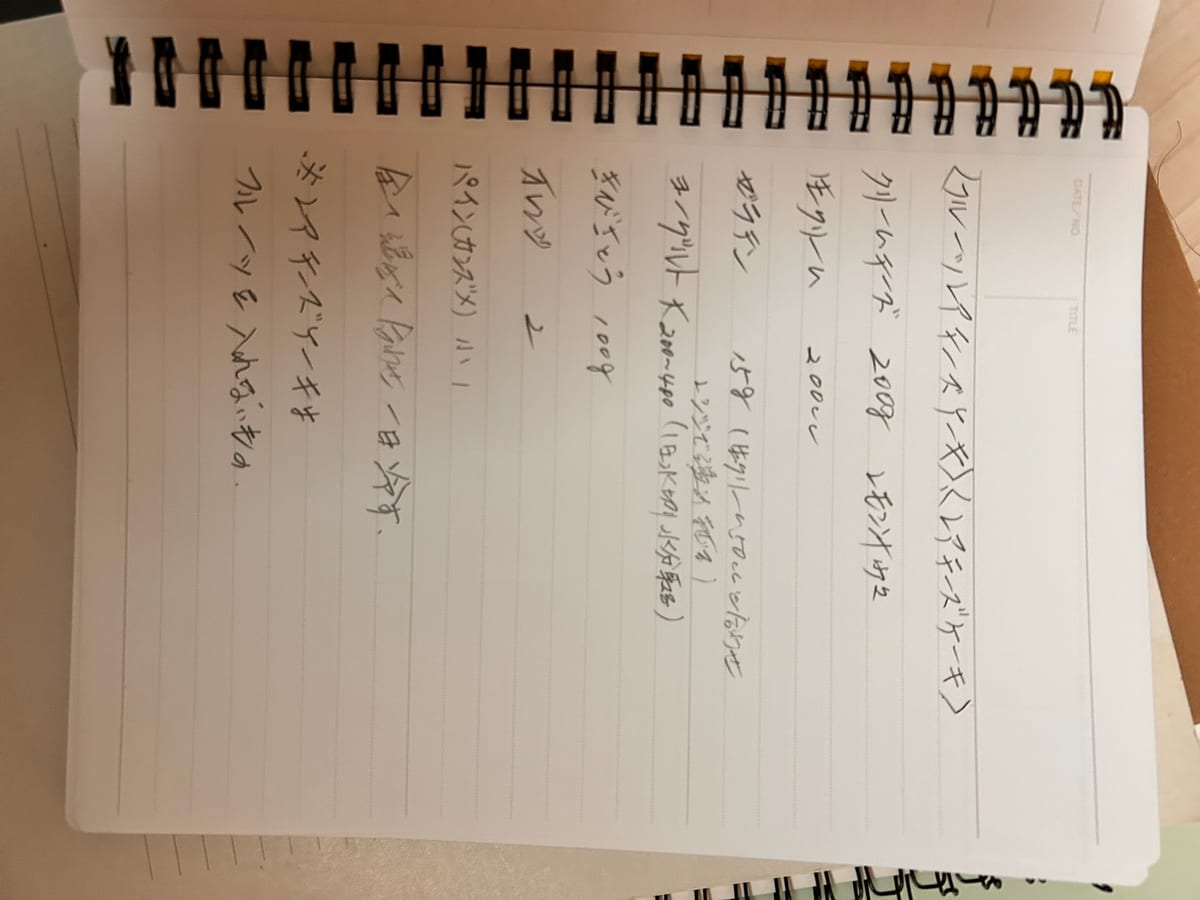 DATE/NO.
TITLE
〈フルーツレアチーズケーキ〉〈レアチーズケーキ〉
クリームチーズ 200g レモン
生クリーム 200cc
ゼラチン 15g (生クリーム50ccと合わせ
レンジで温め 混ぜる)
ヨーグルト 大 200~400 (1日水切り 水分取る)
きびざとう 100g
オレンジ 2
パイン(カンズメ) 小 1
全て混ぜて合わせ 一日冷す、
※レアチーズケーキは
フルーツを入れないもの.